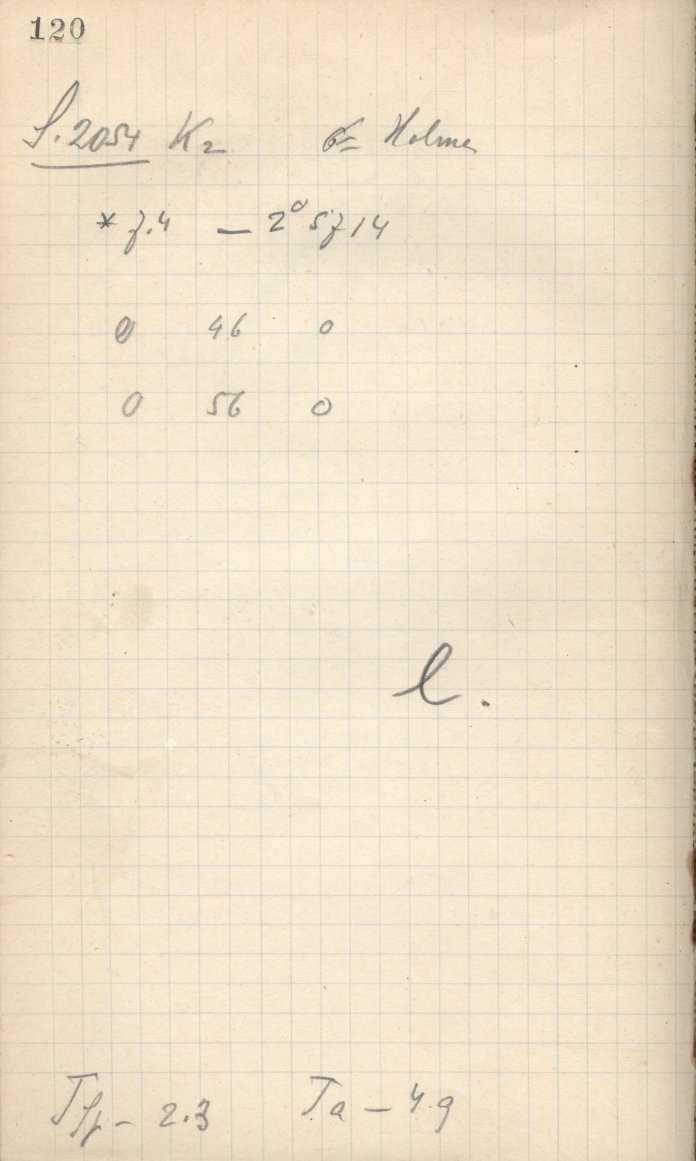 120
S. 2054 K2 Holme
* 7.4 — 2° 57 14
0 46 0
0 56 0
l.
Tsp - 2.3 Ta - 4.9